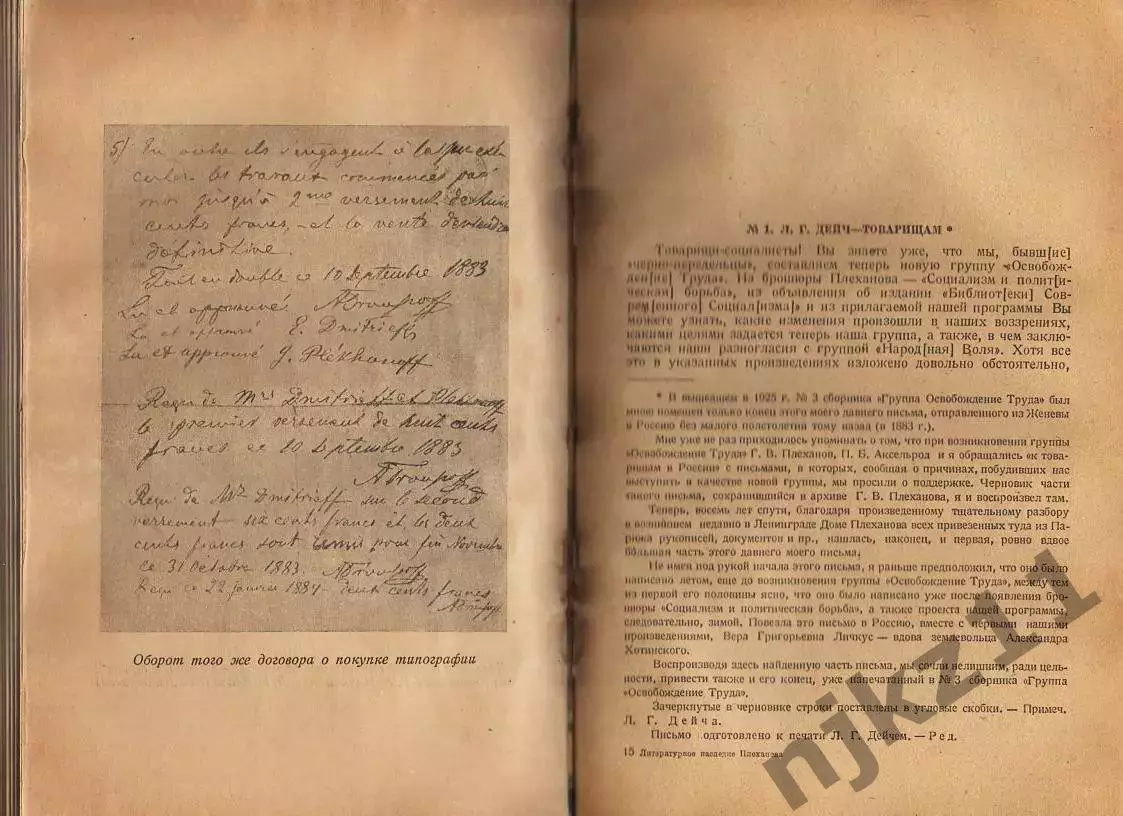 5) En outre ils s'engagent à
les travaux commencés par
moi jusqu'à 2me versement de huit
cents francs, et la vente deviendra
définitive.
Fait en double ce 10 Septembre 1883
Lu et approuvé A Troussoff
Lu et approuvé E. Dmitrieff
Lu et approuvé G. Plékhanoff
Reçu de Mrs Dmitrieff et
le premier versement de huit cents
francs ce 10 Septembre 1883
A Troussoff
Reçu de Mr Dmitrieff sur le second
versement six cents francs et les deux
cents francs sont remis pour fin Novembre
ce 31 Octobre 1883. A Troussoff
Reçu ce 22 janvier 1884 deux cents francs
A Troussoff
Оборот того же договора о покупке типографии
№ 1. Л. Г. ДЕЙЧ—ТОВАРИЩАМ *
Товарищи-социалисты! Вы знаете уже, что мы, бывш[ие]
«черно-передельцы», составляем теперь новую группу «Освобож-
ден[ие] Труда». Из брошюры Плеханова — «Социализм и полит[и-
ческая] борьба», из объявления об издании «Библиот[еки] Сов-
рем[енного] Социал[изма]» и из прилагаемой нашей программы Вы
можете узнать, какие изменения произошли в наших воззрениях,
какими целями задается теперь наша группа, а также, в чем заклю-
чаются наши разногласия с группой «Народ[ная] Воля». Хотя все
это в указанных произведениях изложено довольно обстоятельно,
* В вышедшем в 1925 г. № 3 сборника «Группа Освобождение Труда» был
мною помещен только конец этого моего давнего письма, отправленного из Женевы
в Россию без малого полстолетия тому назад (в 1883 г.).
Мне уже не раз приходилось упоминать о том, что при возникновении группы
«Освобождение Труда» Г. В. Плеханов, П. Б. Аксельрод и я обращались «к това-
рищам в России» с письмами, в которых, сообщая о причинах, побудивших нас
выступить в качестве новой группы, мы просили о поддержке. Черновик части
такого письма, сохранившийся в архиве Г. В. Плеханова, я и воспроизвел там.
Теперь, восемь лет спустя, благодаря произведенному тщательному разбору
в возникшем недавно в Ленинграде Доме Плеханова всех привезенных туда из Па-
рижа рукописей, документов и пр., нашлась, наконец, и первая, ровно вдвое
большая часть этого давнего моего письма.
Не имея под рукой начала этого письма, я раньше предположил, что оно было
написано летом, еще до возникновения группы «Освобождение Труда», между тем
из первой его половины ясно, что оно было написано уже после появления бро-
шюры «Социализм и политическая борьба», а также проекта нашей программы,
следовательно, зимой. Повезла это письмо в Россию, вместе с первыми нашими
произведениями, Вера Григорьевна Личкус — вдова землевольца Александра
Хотинского.
Воспроизводя здесь найденную часть письма, мы сочли нелишним, ради цель-
ности, привести также и его конец, уже напечатанный в № 3 сборника «Группа
«Освобождение Труда».
Зачеркнутые в черновике строки поставлены в угловые скобки. — Примеч.
Л. Г. Дейча.
Письмо подготовлено к печати Л. Г. Дейчем. — Ред.
15 Литературное наследие Плеханова
njkz11